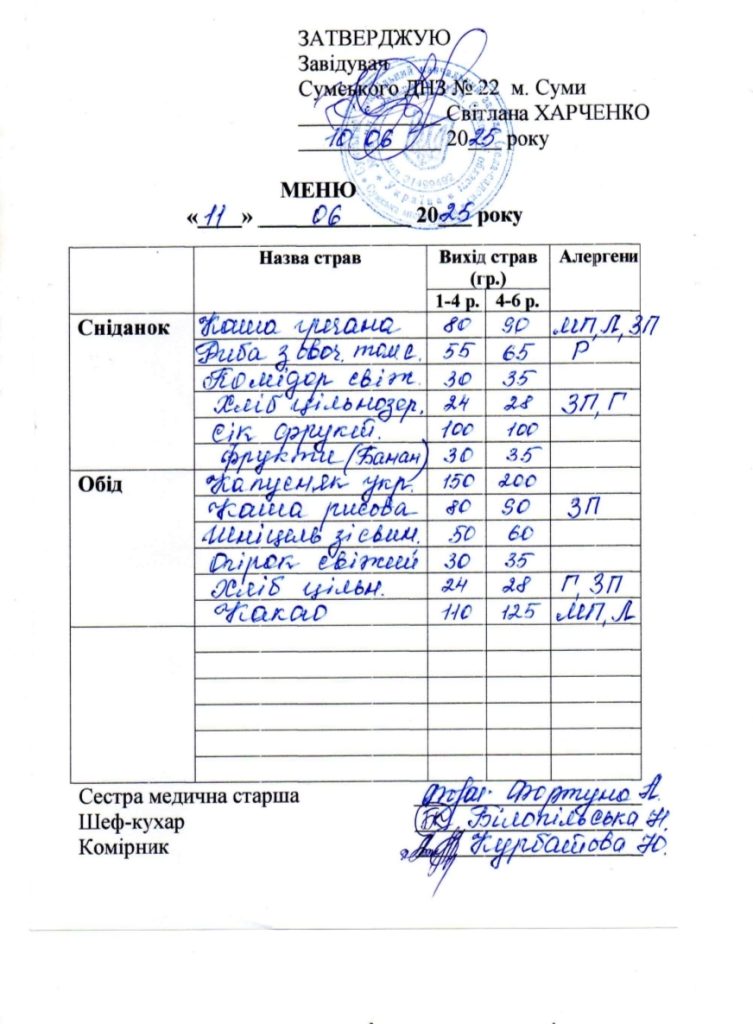 ЗАТВЕРДЖУЮ
Завідувач
Сумського ДНЗ № 22 м. Суми
Світлана ХАРЧЕНКО
10 06 2025 року
МЕНЮ
«11» 06 2025 року
Назва страв Вихід страв (гр.) Алергени
1-4 р. 4-6 р.
Сніданок Каша гречана 80 90 МП, Л, ЗП
Риба з овоч. томс. 55 65 Р
Помідор свіж. 30 35
Хліб цільнозер. 24 28 ЗП, Г
Сік фрукт. 100 100
Фрукти (Банан) 30 35
Обід Капусняк укр. 150 200
Каша рисова 80 90 ЗП
Шніцель зі свин. 50 60
Огірок свіжий 30 35
Хліб цільн. 24 28 Г, ЗП
Какао 110 125 МП, Л
Сестра медична старша Фортуно Л.
Шеф-кухар Білопільська Н.
Комірник Курбатова Ю.